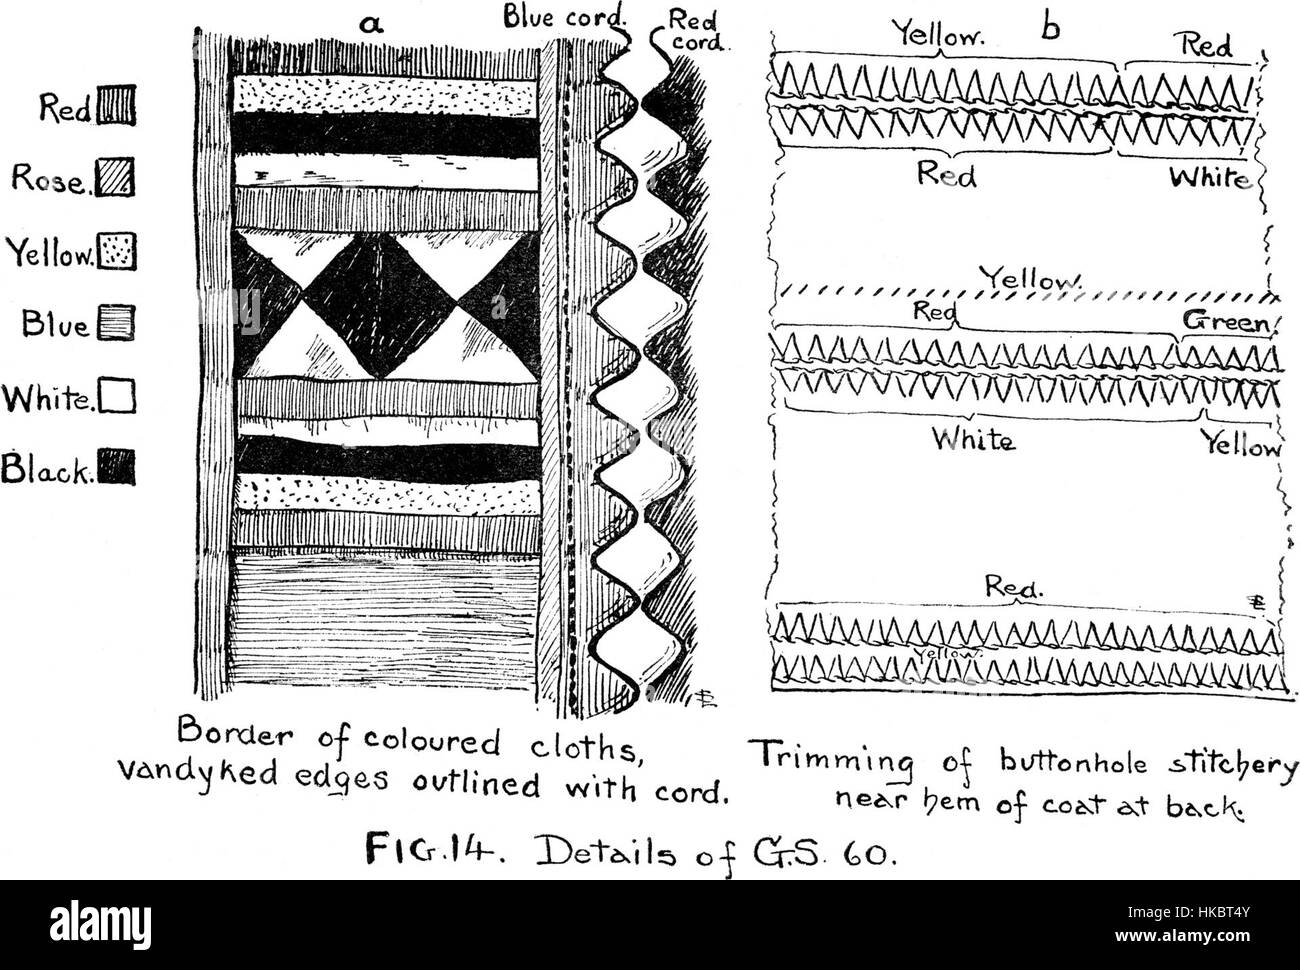 a
Blue cord.
Red
cord.
b
Red
Rose.
Yellow.
Blue
White.
Black.
Yellow.
Red
Red
White
Yellow.
Red
Green.
White
Yellow
Red.
Yellow.
Border of coloured cloths,
vandyked edges outlined with cord.
Trimming of buttonhole stitchery
near hem of coat at back.
FIG.14. Details of G.S. 60.
alamy
Image ID: HKBT4Y
www.alamy.com